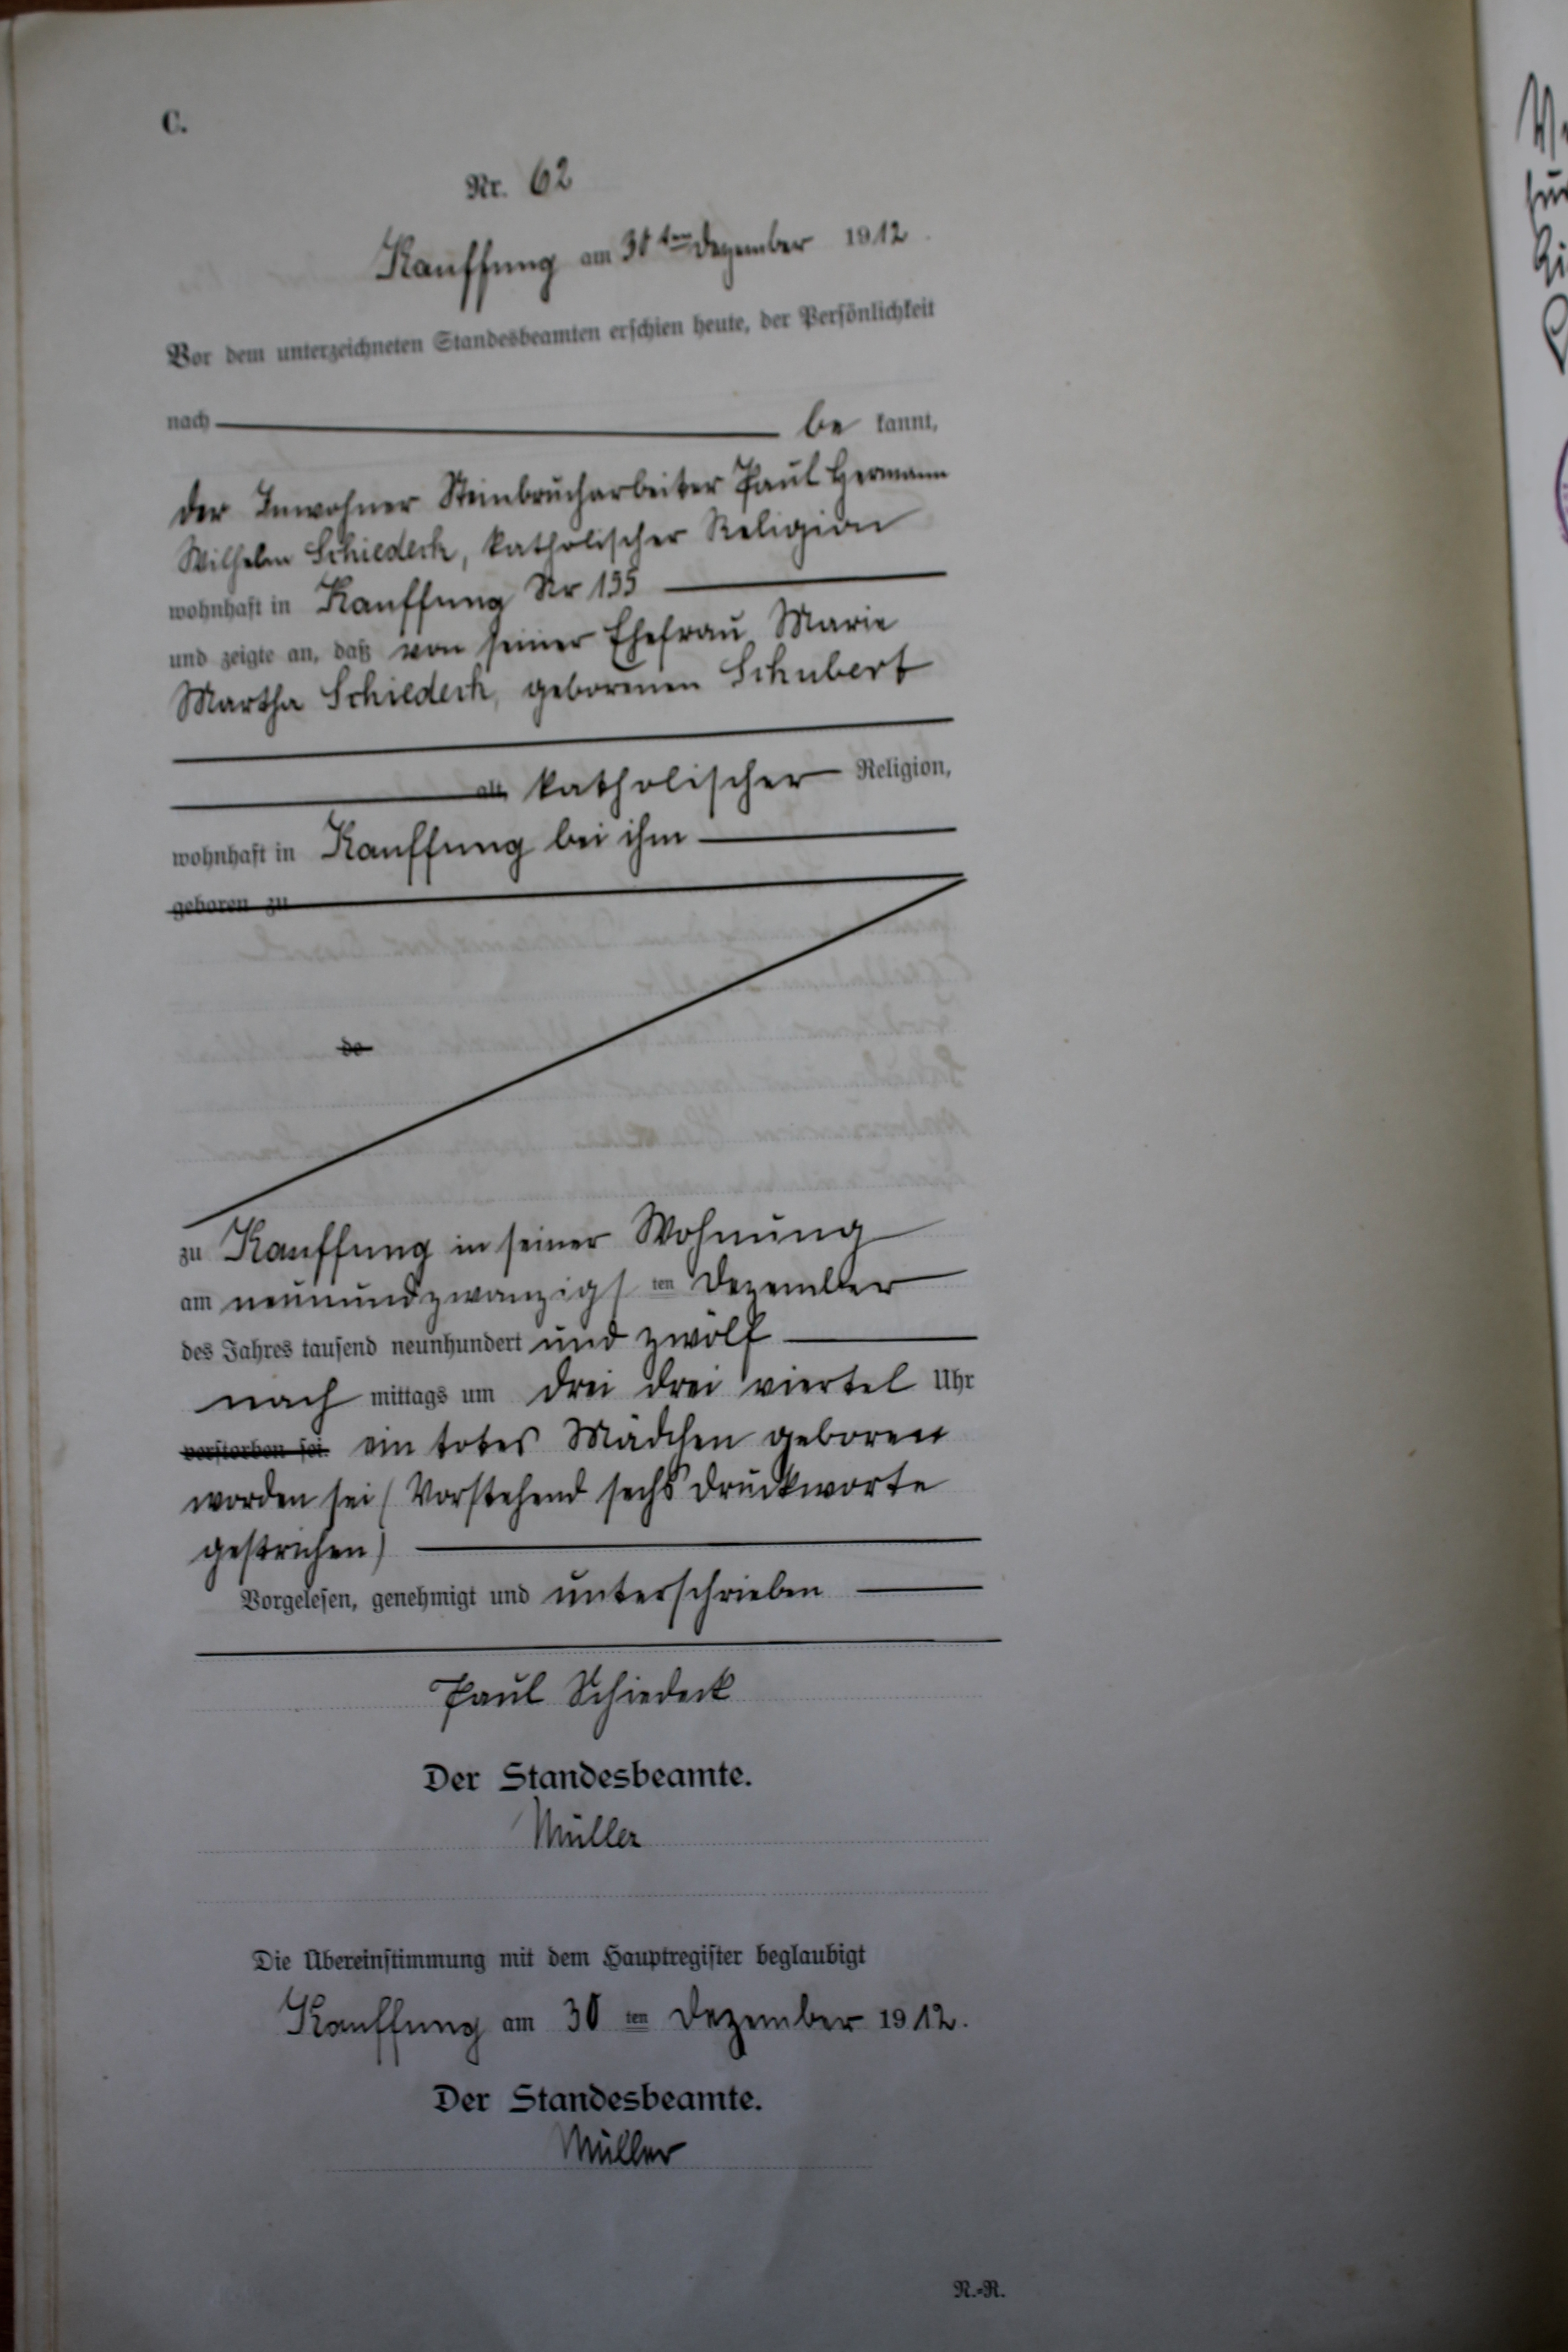 C.
Nr. 62
Kauffung am 30ten Dezember 1912
Vor dem unterzeichneten Standesbeamten erschien heute, der Persönlichkeit
nach be kannt,
der Inwohner Steinbrucharbeiter Paul Hermann
Wilhelm Schiedeck, katholischer Religion
wohnhaft in Kauffung Nr 195
und zeigte an, daß von seiner Ehefrau Marie
Martha Schiedeck, geborenen Schubert
alt, katholischer Religion,
wohnhaft in Kauffung bei ihm
geboren zu
da
zu Kauffung in seiner Wohnung
am neunundzwanzigsten Dezember
des Jahres tausend neunhundert und zwölf
nach mittags um drei drei viertel Uhr
verstorben sei. ein totes Mädchen geboren
worden sei (Vorstehend sechs Druckworte
gestrichen)
Vorgelesen, genehmigt und unterschrieben
Paul Schiedeck
Der Standesbeamte.
Müller
Die Übereinstimmung mit dem Hauptregister beglaubigt
Kauffung am 30ten Dezember 1912.
Der Standesbeamte.
Müller
N.-R.